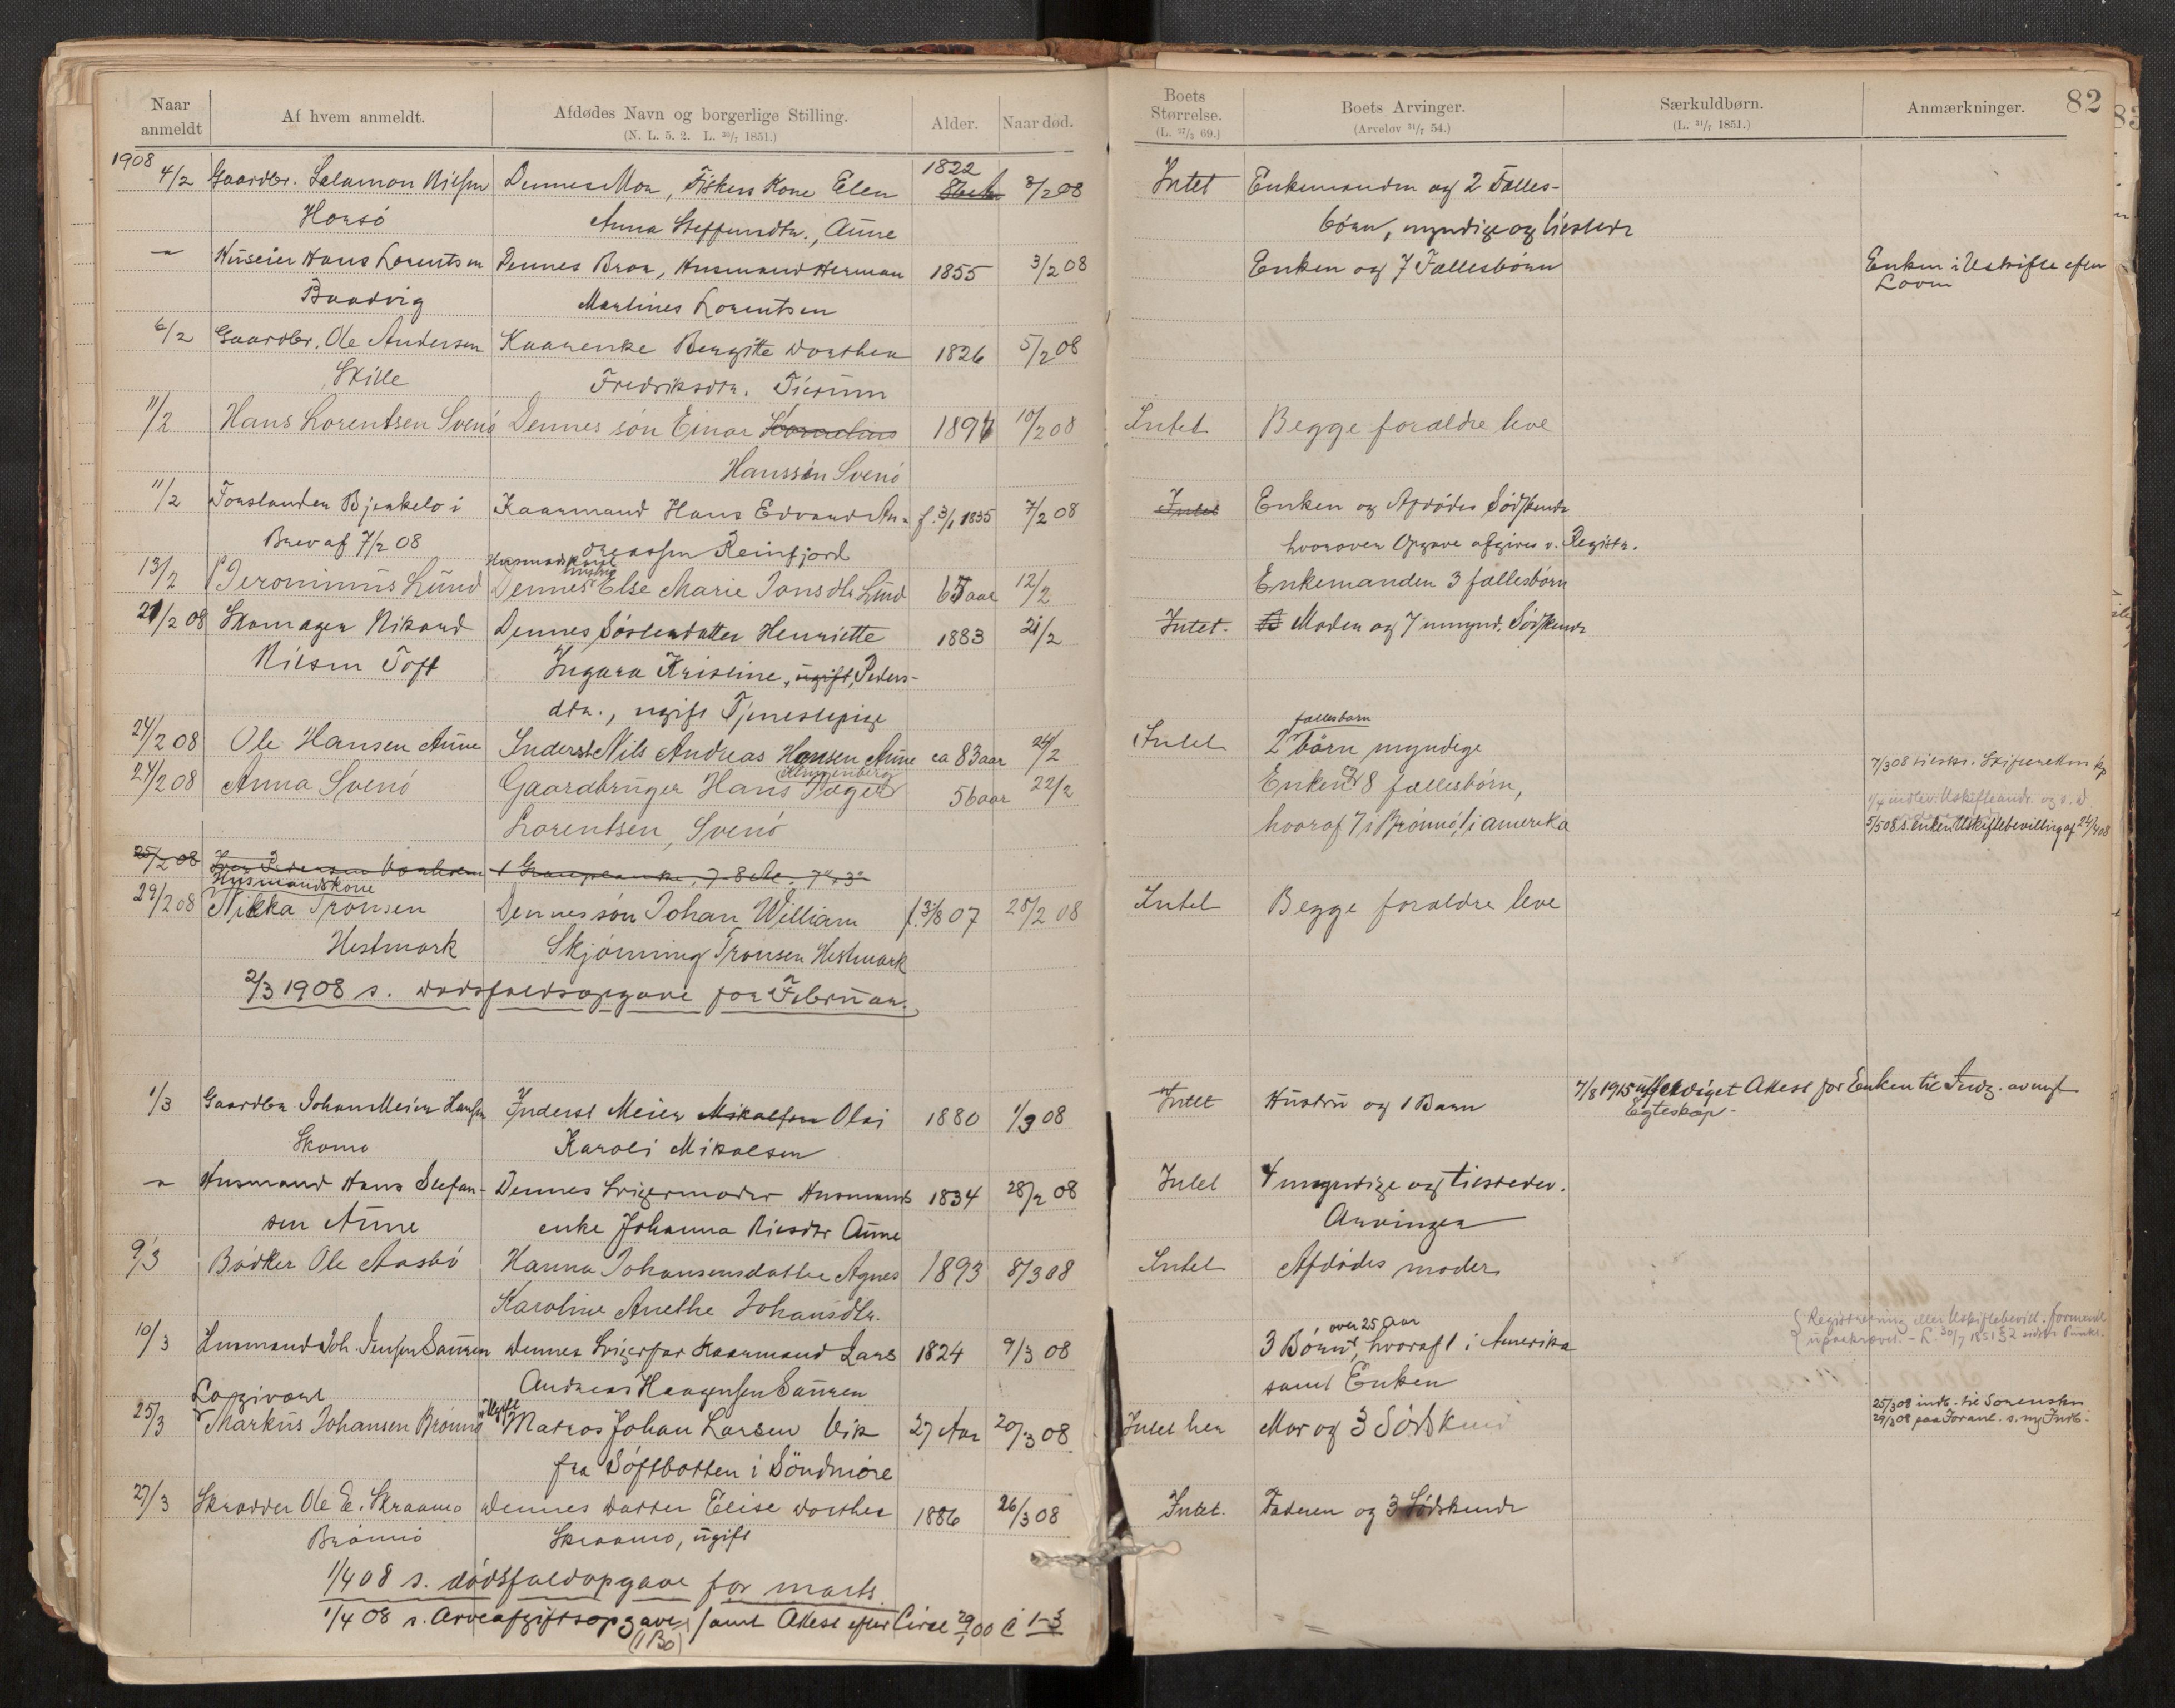 Naar anmeldt
Af hvem anmeldt.
Afdødes Navn og borgerlige Stilling.
(N. L. 5. 2. L. 30/7 1851.)
Alder.
Naar død.
Boets Størrelse.
(L. 27/3 69.)
Boets Arvinger.
(Arvelov 31/7 54.)
Særkuldbørn.
(L. 31/7 1851.)
Anmærkninger.
82
1908 4/2 Gaardbr. Salamon Nilsen Dennes Mor, Fiskers Kone Elen 1822 3/2 08 Intet Enkemanden og 2 Fælles-
Horsø Anna Steffensdtr., Aune børn, myndige og tilstede
" Huseier Hans Lorentsen Dennes Bror, Husmand Herman 1855 3/2 08 Enken og 7 Fællesbørn Enken i Uskifte efter
Baadvig Martines Lorentsen Loven
6/2 Gaardbr. Ole Andersen Kaarenke Bergitte Dorthea 1826 5/2 08
Skille Fredriksdtr. Tierum
11/2 Hans Lorentsen Svenø Dennes søn Einar Kornelius 1897 10/2 08 Intet Begge forældre leve
Hanssen Svenø
11/2 Forstander Bjerkelo i Kaarmand Hans Edvard An- f. 3/1 1835 7/2 08 Intet Enken og Afdødes Sødskende
Brev af 7/2 08 dreassen Reinfjord hvorover Opgave afgives v. Registr.
13/2 Jeronimus Lund Dennes hustru Else Marie Jonsdtr Lund 65 aar 12/2 Enkemanden 3 fællesbørn
21/2 08 Skomager Rikard Dennes Søsterdatter Henriette 1883 21/2 Intet. Moder og 7 umynd. Sødskende
Nilsen Toft Ingara Kristine, ugift, Peders-
dtr., ugift Tjenestepige
24/2 08 Ole Hansen Aune Inderst Nils Andreas Hansen Aune ca 83 aar 24/2 Intet 2 fællesbørn børn myndige
24/2 08 Anna Svenø Gaardbruger Hans Klingenberg Jæger 56 aar 22/2 Enken og 8 fællesbørn,
Lorentsen, Svenø hvoraf 7 i Brønnø, 1 i amerika 5/5 08 s. enken Uskiftebevilling af 24/4 08
25/2 08
Husmandskone
29/2 08 Nikka Tronsen Dennes søn Johan William f. 3/8 07 28/2 08 Intet Begge forældre leve
Hestmark Skjønning Tronsen Hestmark
2/3 1908 s. dødsfaldsopgave for Februar.
1/3 Gaardbr Johan Meier Hansen Inderst Meier Mikalsen Olai 1880 1/3 08 Intet Hustru og 1 Barn 7/8 1915 utferdiget Attest for Enken til Indg. av nyt
Skomo Karoli Mikalsen Egteskap.
" Husmand Hans Stefan- Dennes Svigermoder Husmands 1834 28/2 08 Intet 4 myndige og tilstedev.
sen Aune enke Johanna Nilsdtr Aune Arvinger
9/3 Bødker Ole Aasbø Hanna Johansensdatter Agnes 1893 8/3 08 Intet Afdødes moder
Karoline Anethe Johansdtr.
10/3 Husmand Joh. Jensen Sauren Dennes Svigerfar Kaarmand Lars 1824 9/3 08 3 Børn over 25 Aar, hvoraf 1 i Amerika Registrering eller Uskiftebevill. formentl.
Andreas Haagensen Sauren samt Enken upaakrævet. – L. 30/7 1851 § 2 sidste Punkt.
Logivært
25/3 Markus Johansen Brønnø Ugift Matros Johan Larsen Vik 27 Aar 20/3 08 Intet her Mor og 3 Sødskend 25/3 08 indb. til Sorensker
fra Søftbotten i Söndmöre
27/3 Skrædder Ole E. Skraamo Dennes datter Elise Dorthea 1886 26/3 08 Intet. Faderen og 3 Sødskende
Brønnø Skraamo, ugift
1/4 08 s. dødsfaldopgave for marts.
1/4 08 s. Arveafgiftsopgave samt Attest efter Circ 29/1 00
(1 Bo)